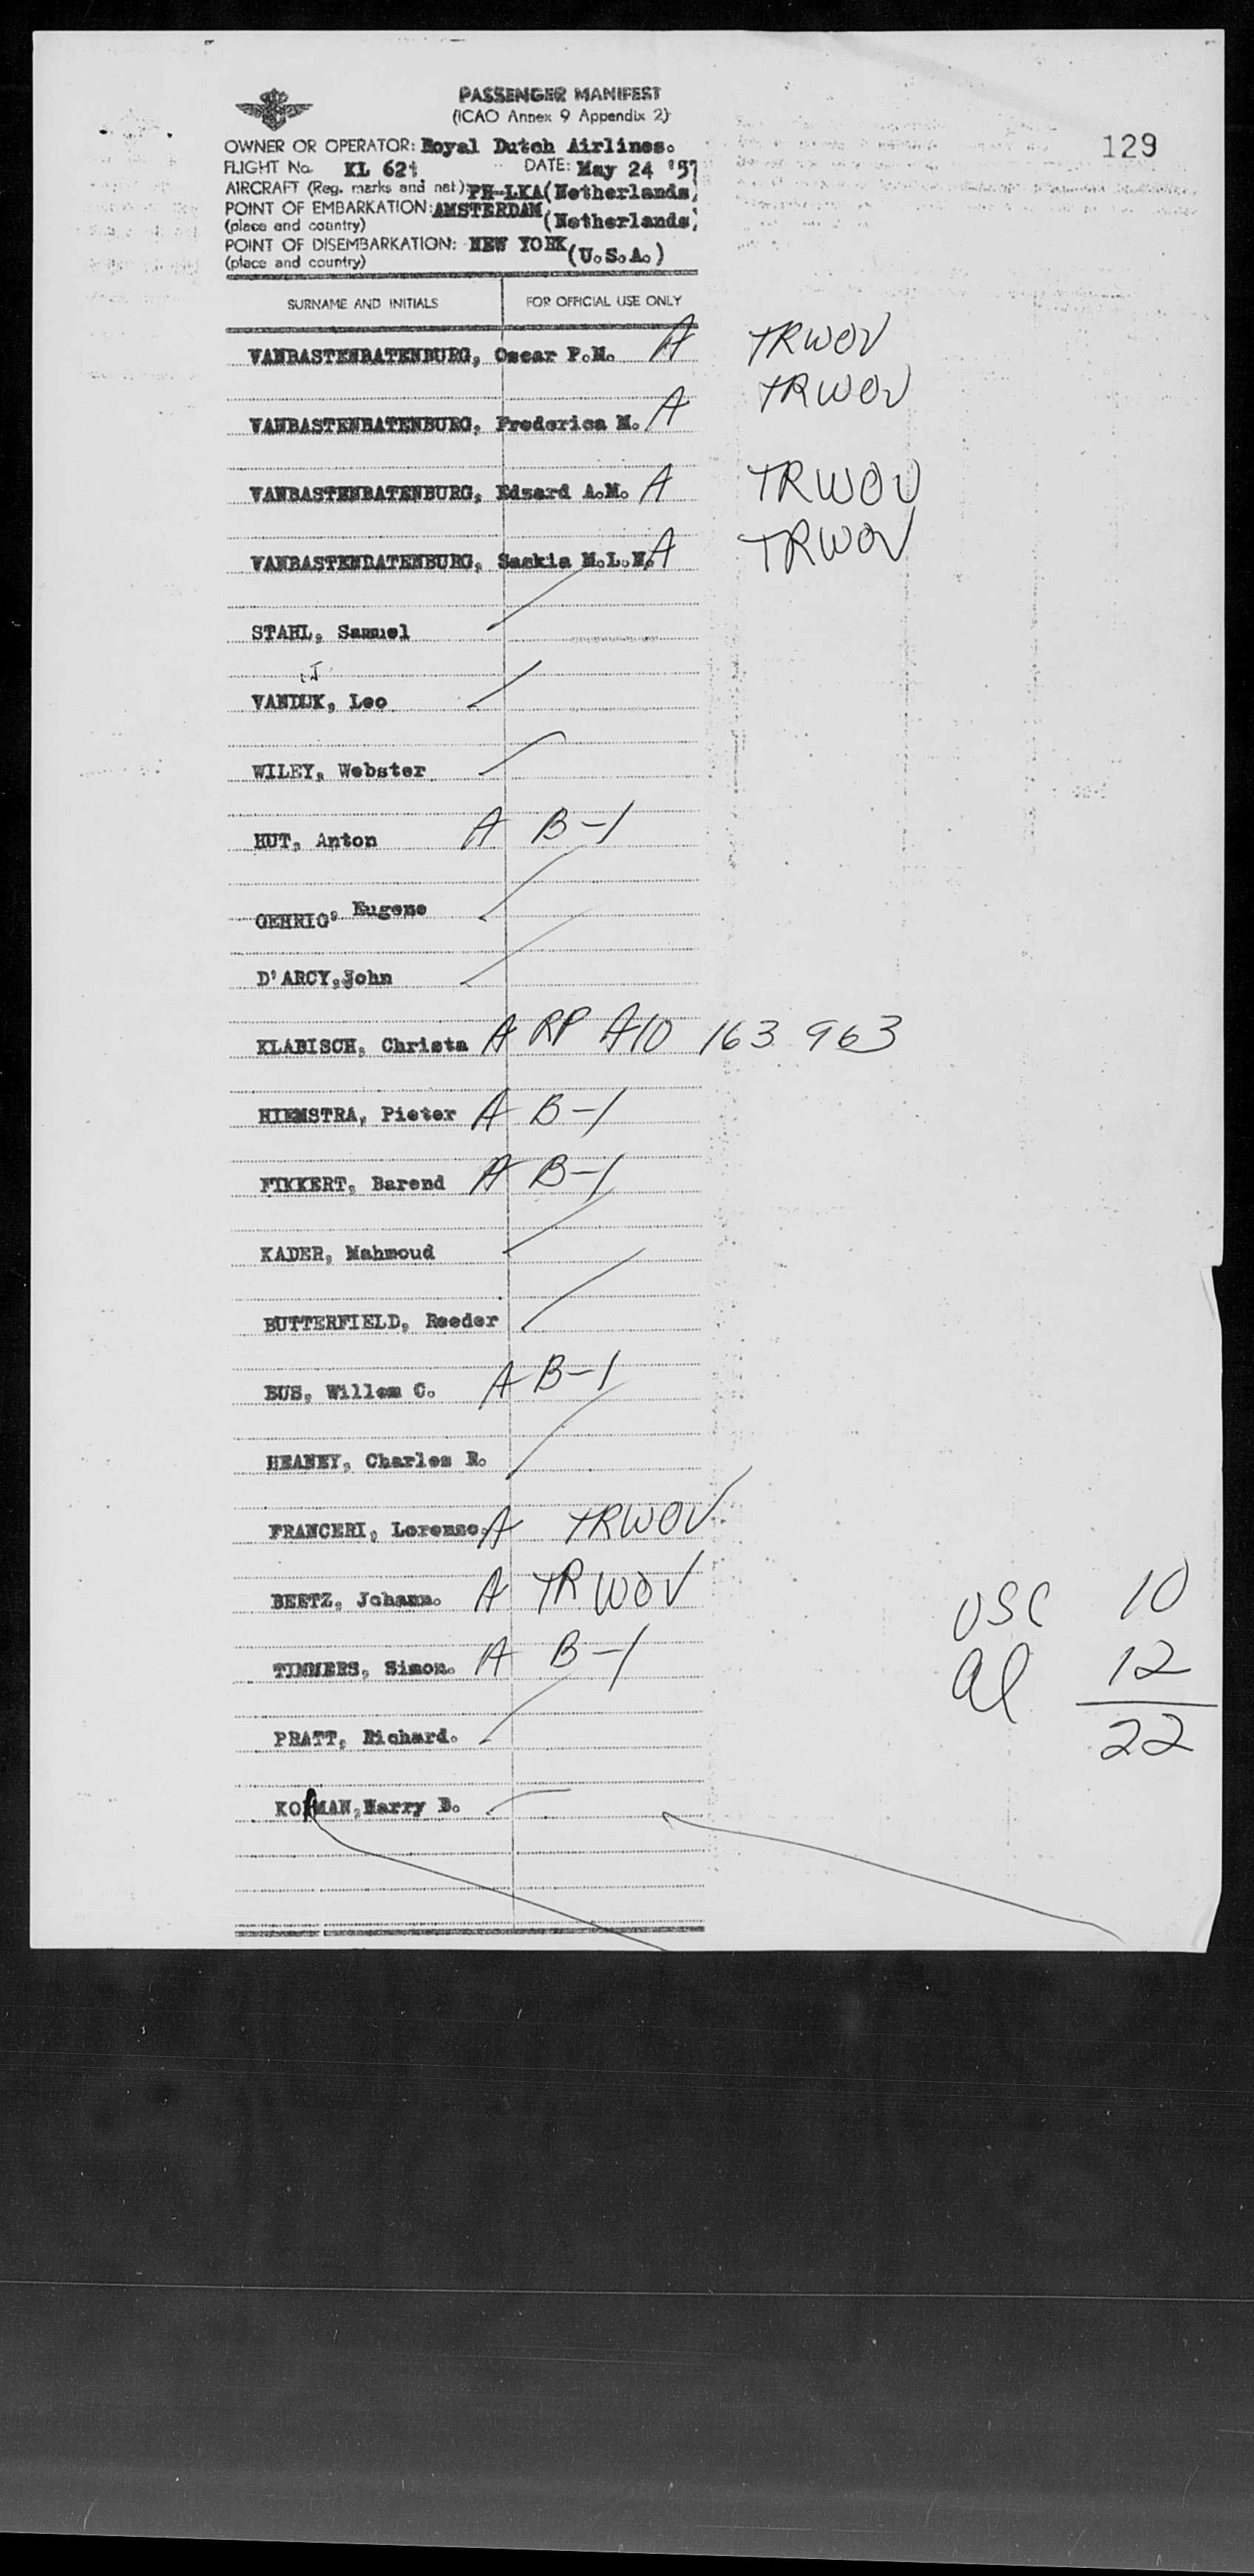 PASSENGER MANIFEST
(ICAO Annex 9 Appendix 2)
129
OWNER OR OPERATOR: Royal Dutch Airlines.
FLIGHT No. KL 621 DATE: May 24 '57
AIRCRAFT (Reg. marks and nat): PH-LKA (Netherlands)
POINT OF EMBARKATION: AMSTERDAM (Netherlands)
(place and country)
POINT OF DISEMBARKATION: NEW YORK (U.S.A.)
(place and country)
SURNAME AND INITIALS FOR OFFICIAL USE ONLY
VANBASTENBATENBURG, Oscar P.M. A TRWOV
VANBASTENBATENBURG, Frederica M. A TRWOV
VANBASTENBATENBURG, Edsard A.M. A TRWOV
VANBASTENBATENBURG, Saskia M.L.N. A TRWOV
STAHL, Samuel
IJ
VANDUK, Leo
WILEY, Webster
HUT, Anton A B-1
GEHRIG, Eugene
D'ARCY, John
KLABISCH, Christa A RP A10 163 963
HIEMSTRA, Pieter A B-1
FIKKERT, Barend A B-1
KADER, Mahmoud
BUTTERFIELD, Reeder
BUS, Willem C. A B-1
HEANEY, Charles R.
FRANCERI, Lorenzo. A TRWOV
BEETZ, Johann. A TRWOV
TIMMERS, Simon. A B-1
PRATT, Richard.
Harry B.
USC 10
al 12
22